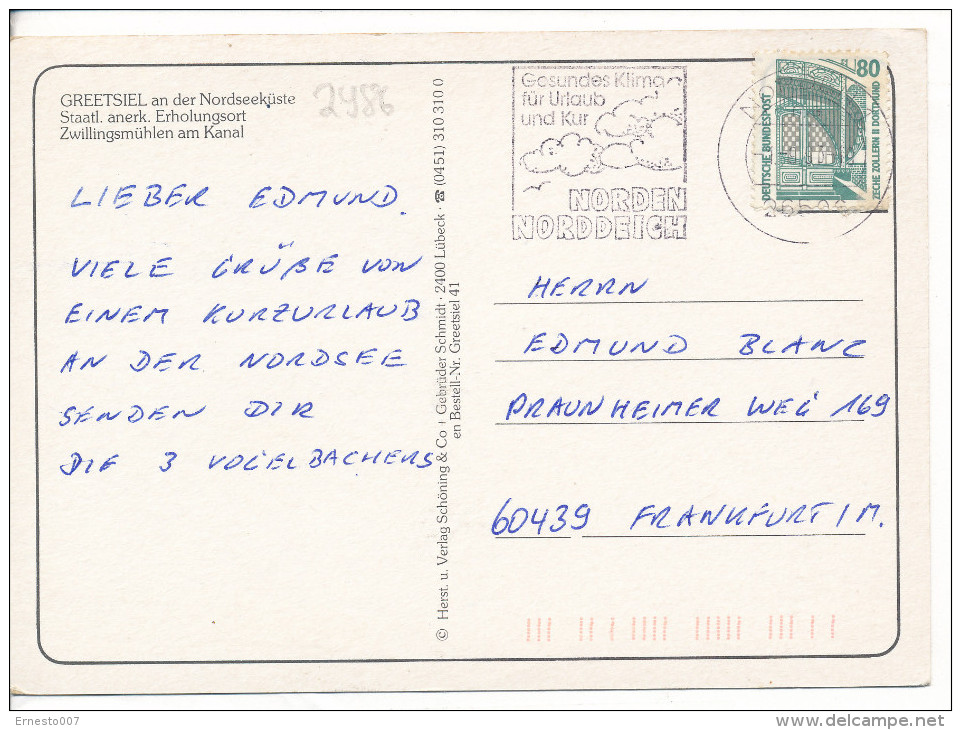 GREETSIEL an der Nordseeküste
Staatl. anerk. Erholungsort
Zwillingsmühlen am Kanal
2986
LIEBER EDMUND.
VIELE GRÜßE VON
EINEM KURZURLAUB
AN DER NORDSEE
SENDEN DIR
DIE 3 VOGELBACHERS
© Herst. u. Verlag Schöning & Co + Gebrüder Schmidt · 2400 Lübeck · ☎ (0451) 310 310 0
en Bestell-Nr. Greetsiel 41
Gesundes Klima
für Urlaub
und Kur
NORDEN
NORDDEICH
DEUTSCHE BUNDESPOST
80
ZECHE ZOLLERN II DORTMUND
HERRN
EDMUND BLANC
PRAUNHEIMER WEG 169
60439 FRANKFURT/M.
Ernesto007
www.delcampe.net